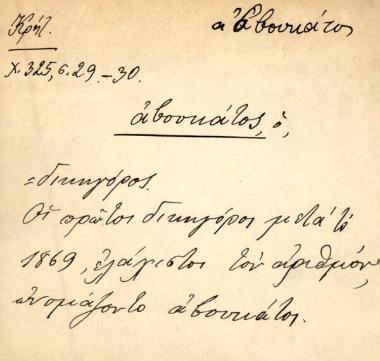 Κρήτ. ἀβουκάτος
Χ. 325, σ. 29.-30.
ἀβουκάτος, ὁ,
=δικηγόρος.
Οἱ πρῶτοι δικηγόροι μετά τό
1869, ἐλάχιστοι τόν ἀριθμόν,
ὠνομάζοντο ἀβουκάτοι.